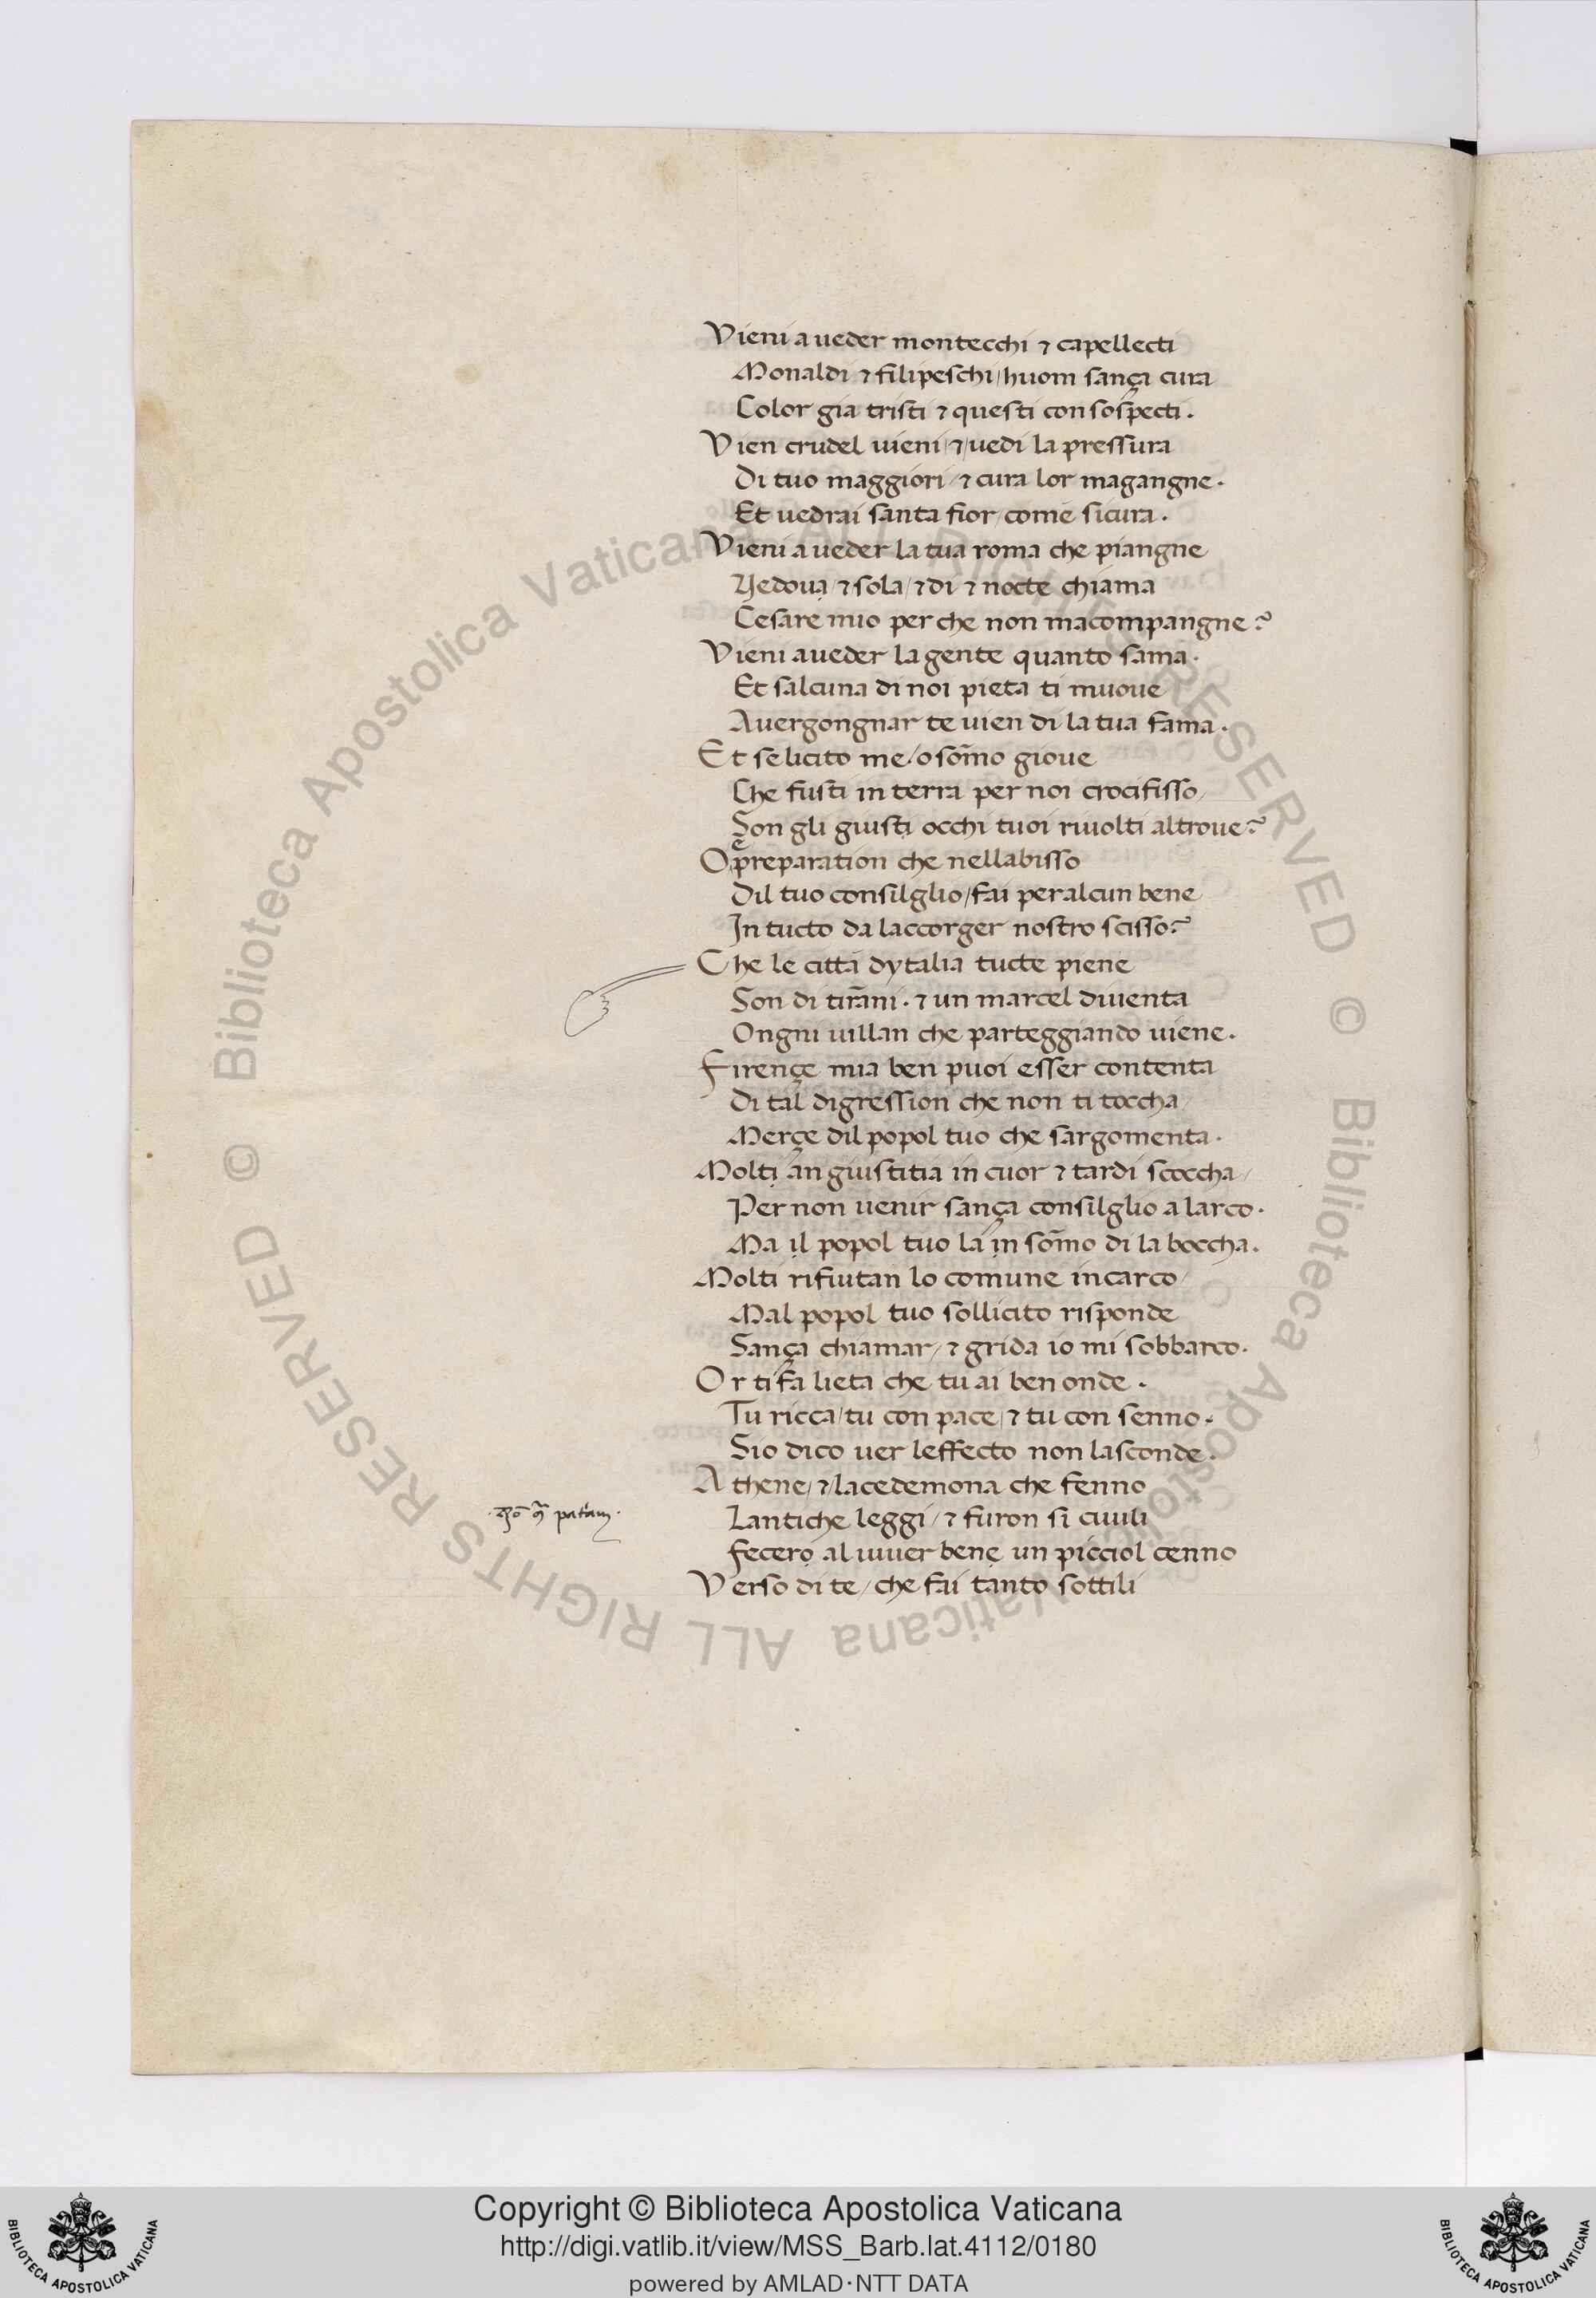 Vieni a ueder montecchi ⁊ capellecti
Monaldi ⁊ filipeschi / huom sança cura
Color gia tristi ⁊ questi con sospecti.
Vien crudel uieni / ⁊ / uedi la pressura
Di tuo maggiori / ⁊ cura lor magangne.
Et uedrai santa fior / come sicura.
Vieni a ueder la tua roma che piangne
Vedoua / ⁊ sola / ⁊ di ⁊ nocte chiama
Cesare mio per che non macompangne?
Vieni a ueder la gente quanto sama.
Et salcuna di noi pieta ti muoue
A uergongnar te uien di la tua fama.
Et se licito me / o som̄o gioue
Che fusti in terra per noi crocifisso /
Son gli giusti occhi tuoi riuolti altroue?
O e preparation che nellabisso
Dil tuo consilglio / fai per alcun bene
In tucto da laccorger nostro scisso?
Che le citta dytalia tucte piene
Son di tirān̄i. ⁊ un marcel diuenta
Ongni uillan che parteggiando uiene.
Firençe mia ben puoi esser contenta
Di tal digression che non ti toccha /
Merçe dil popol tuo che sargomenta.
Molti an giustitia in cuor ⁊ tardi scoccha /
Per non uenir sança consilglio a larco.
Ma il popol tuo la in som̄o di la boccha.
Molti rifiutan lo comune incarco /
Mal popol tuo sollicito risponde
Sança chiamar / ⁊ grida io mi sobbarco.
Or ti fa lieta che tu ai ben onde.
Tu ricca / tu con pace / ⁊ tu con senno.
Sio dico uer leffecto non lasconde.
Athene / ⁊ / lacedemona che fenno
Lantiche leggi / ⁊ furon si ciuili
Fecero al uiuer bene un picciol cenno
Verso di te / che fai tanto sottili
© Biblioteca Apostolica Vaticana ALL RIGHTS RESERVED © Biblioteca Apostolica Vaticana ALL RIGHTS RESERVED
Copyright © Biblioteca Apostolica Vaticana
http://digi.vatlib.it/view/MSS_Barb.lat.4112/0180
powered by AMLAD·NTT DATA
BIBLIOTECA APOSTOLICA VATICANA
BIBLIOTECA APOSTOLICA VATICANA